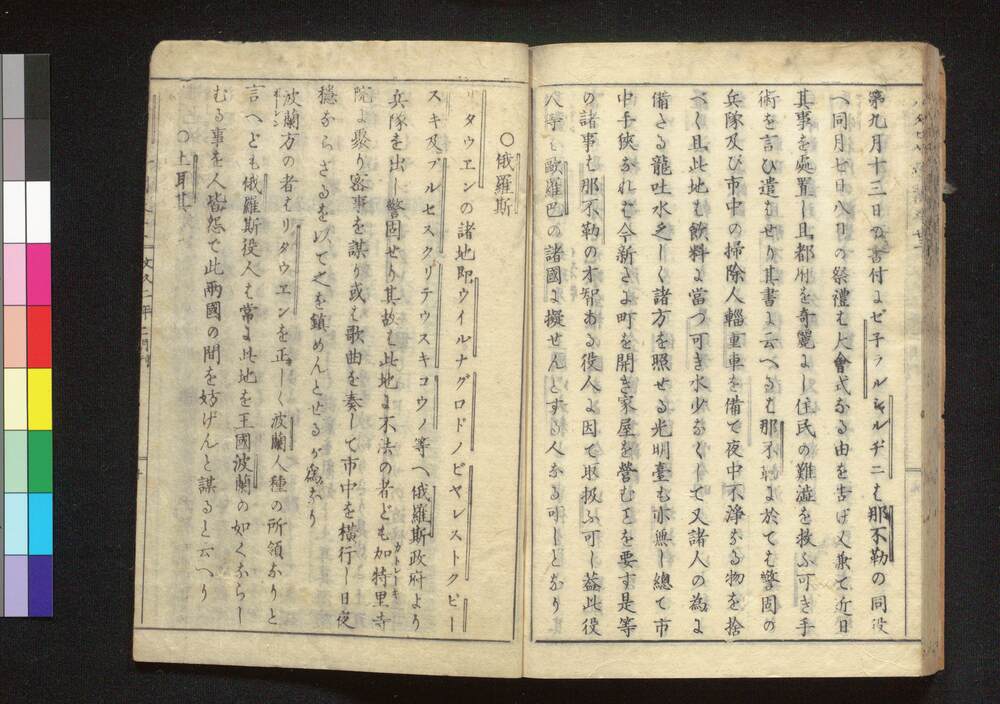 第九月十三日の書付よゼ子ラルシャルヂニは那不勒の同役
へ同月七日八日の祭禮は大會式なる由を告げ又兼て近日
其事を處置し且都府を奇麗よし住民の難澁を救ふ可き手
術を言ひ遣はせり其書よ云へるは那不勒よ於ても警固の
兵隊及び市中の掃除人輜重車を備て夜中不淨なる物を捨
べく且此地は飲料よ當つ可き水少なくして又諸人の為よ
備さる龍吐水乏しく諸方を照せる光明臺も亦無し總て市
中手狹なれば今新さよ町を開き家屋を營むことを要す是等
の諸事は那不勒の才智ある役人よ因て取扱ふ可し蓋此役
人等を歐羅巴の諸國よ擬せんとする人なる可しとなり
○俄羅斯
リタウエンの諸地即ウイルナグロドノビヤレストクビー
スキ及ブルセスクリテウスキコウノ等へ俄羅斯政府より
兵隊を出し警固せり其故は此地よ不法の者ども加特里寺
カトレーキ
院よ聚り密事を謀り或は歌曲を奏して市中を横行し日夜
穏ならざるを以て之を鎮めんとせるが為なり
波蘭方の者はリタウエンを正しく波蘭人種の所領なりと
ポーレン
言へども俄羅斯役人は常よ此地を王國波蘭の如くならし
むる事を人皆怨で此兩國の間を妨げんと謀ると云へり
○土耳其
文久二年二月